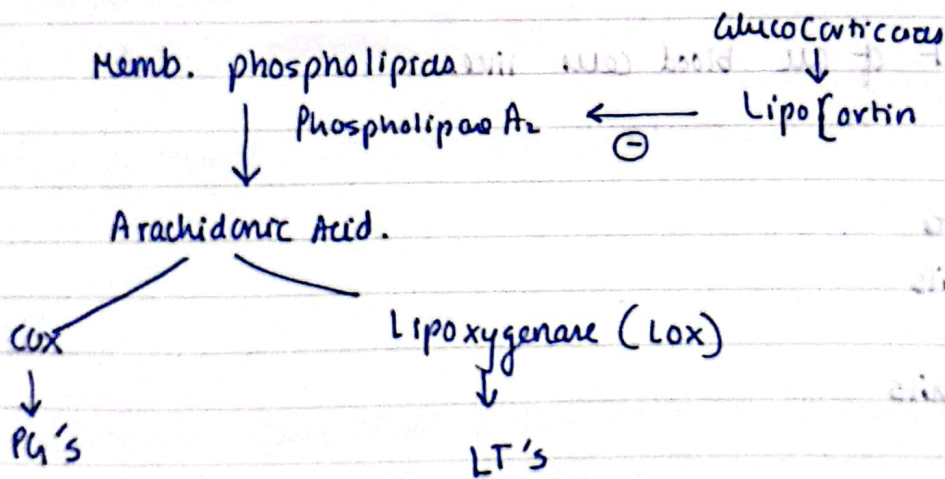 Glucocorticoids
Memb. phospholipids
Phospholipase A₂ ← ⊖ Lipocortin
Arachidonic Acid.
COX Lipoxygenase (LOX)
PG's LT's